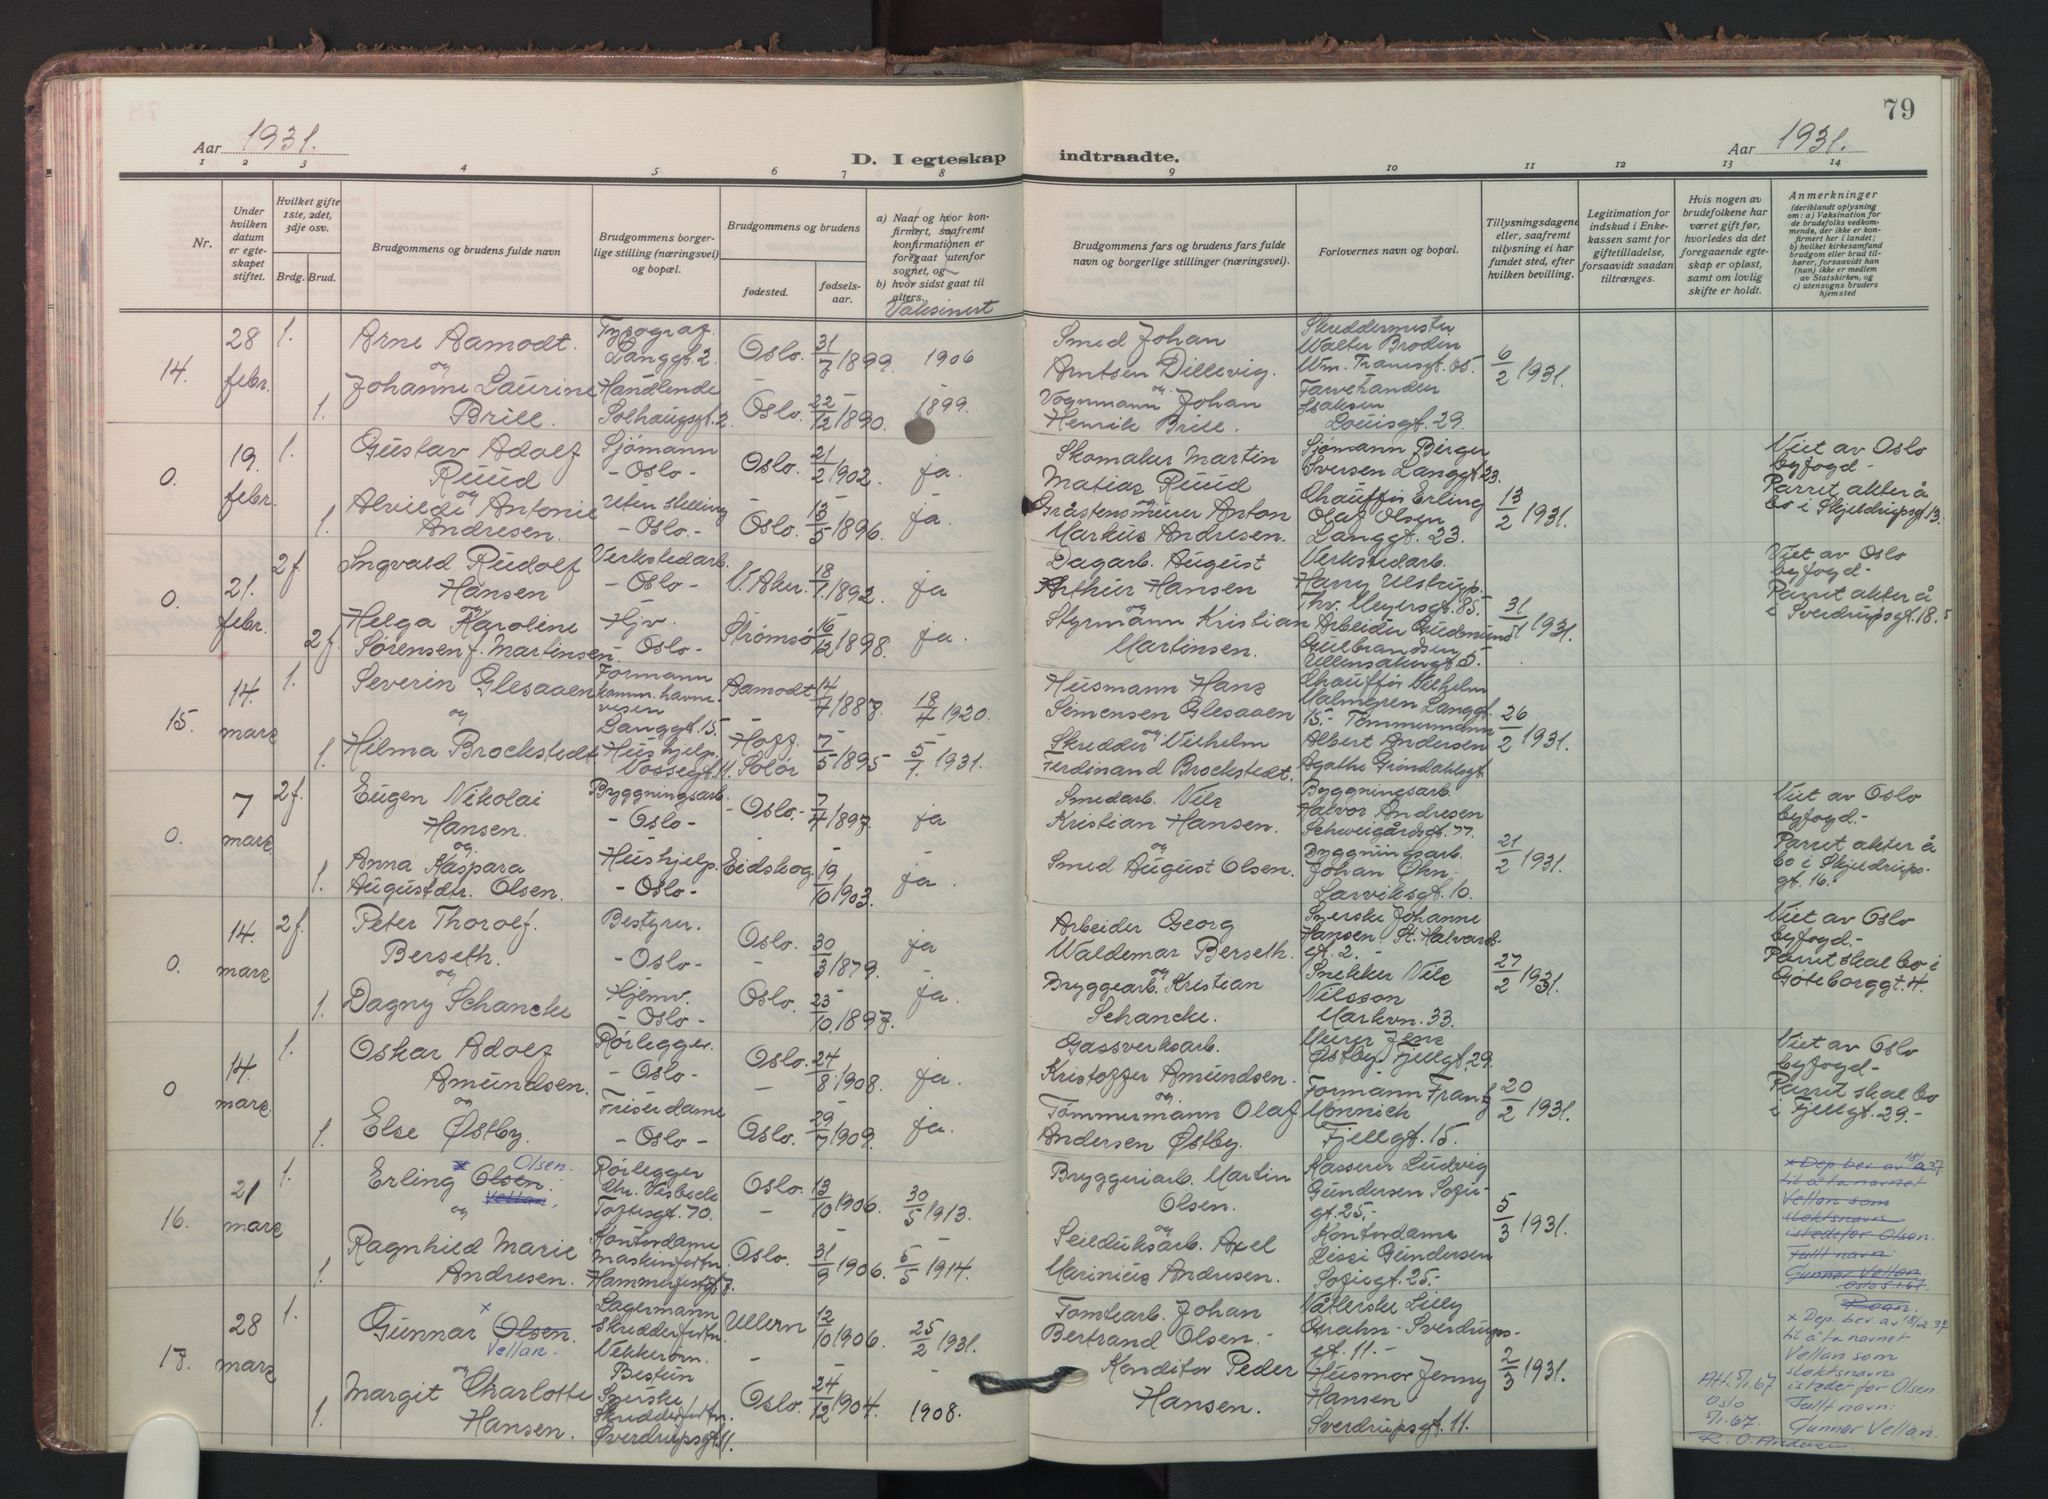 79
Aar 1931.
D. I egteskap indtraadte.
Aar 1931.
1 2 3 4 5 6 7 8 9 10 11 12 13 14
Nr.
Under hvilken datum er egteskapet stiftet.
Hvilket gifte 1ste, 2det, 3dje osv.
Brdg. Brud.
Brudgommens og brudens fulde navn
Brudgommens borgerlige stilling (næringsvei) og bopæl.
Brudgommens og brudens
fødested.
fødselsaar.
a) Naar og hvor konfirmert, saafremt konfirmationen er foregaat utenfor sognet, og
b) hvor sidst gaat til alters.
Vaksinert
Brudgommens fars og brudens fars fulde navn og borgerlige stillinger (næringsvei).
Forlovernes navn og bopæl.
Tillysningsdagene eller, saafremt tillysning ei har fundet sted, efter hvilken bevilling.
Legitimation for indskud i Enkekassen samt for giftetilladelse, forsaavidt saadan tiltrænges.
Hvis nogen av brudefolkene har været gift før, hvorledes da det foregaaende egteskap er opløst, samt om lovlig skifte er holdt.
Anmerkninger
(deriblandt oplysning om: a) Vaksination for de brudefolks vedkommende, der ikke er konfirmert her i landet; b) hvilket kirkesamfund brudgom eller brud tilhører, forsaavidt han (hun) ikke er medlem av Statskirken, og c) utensogns bruders hjemsted
14. 28 febr. 1. Arne Aamodt. Typograf Langgt. 2. Oslo. 31/7 1899. 1906
og
1. Johanne Laurine Brill. Handlende Solhaugsgt. 2. Oslo. 22/12 1890. 1899.
Smed Johan Arntsen Dillevig.
og
Vognmann Johan Henrik Brill.
Skreddermester Walter Broden
Farvehandler Isaksen Louisgt. 29.
6/2 1931.
0. 19. febr. 1. Gustav Adolf Ruud Sjømann - Oslo - Oslo. 21/2 1902. ja.
og
1. Alvilde Antonie Andresen. Uten stilling - Oslo - Oslo. 13/5 1896. ja.
Skomaker Martin Matias Ruud
og
Gråstensmurer Anton Markus Andresen.
Sjømann Birger Iversen Langgt. 23.
Chauffør Erling Olaf Olsen Langgt. 23.
13/2 1931.
Viet av Oslo byfogd -
Parret akter å bo i Skjeldrupsgt. 13.
0. 21. febr. 2f. Ingvald Rudolf Hansen Verkstedarb. - Oslo - V. Aker. 18/7 1892. ja
og
2f. Helga Karoline Sørensen f. Martinsen Hjv. - Oslo - Strømsø 16/12 1898. ja.
Dagarb. August Arthur Hansen
og
Styrmann Kristian Martinsen.
Verkstedarb. Harry Ulstrup. Thv. Meyersgt. 85.
Arbeider Gudmund Gulbrandsen Ullensakergt. 5.
31/1 1931.
Viet av Oslo byfogd -
Parret akter å i Sverdrupsgt. 18.
15. 14. mars 1. Severin Glesaaen Formann komm. havnevesen Langgt. 15. Aamodt 14/7 1887. 18/4 1920.
og
1. Hilma Brockstedt Hushjelp. Vossegt. 11. Hoff. Solør 7/5 1895 5/7. 1931.
Husmann Hans Simensen Glesaaen
og
Skredder Vilhelm Ferdinand Brockstedt.
Chauffør Vilhelm Malmgren Langgt. 15. - Tømmermann Albert Andersen Agathe Grøndahlsgt.
26/2 1931.
0. 7 mars. 2f. Eugen Nikolai Hansen. Byggningsarb. - Oslo - Oslo. 7/4 1897. ja
og
1. Anna Kaspara Augustdtr. Olsen. Hushjelp. - Oslo - Eidskog. 19/10 1903. ja.
Smedarb. Nils Kristian Hansen.
og
Smed August Olsen.
Byggningsarb. Halvor Andresen Schweigårdsgt. 77.
Byggningsarb. Johan Øhn. Larviksgt. 10.
21/2 1931.
Viet av Oslo byfogd. -
Parret akter å bo i Skjeldrupsgt. 16.
0. 14. mars. 2f. Peter Thorolf. Berseth. Bestyrer. - Oslo - Oslo. 30/3 1879. ja
og
1. Dagny Schancke Hjemv. - Oslo - Oslo. 23/10. 1897. ja.
Arbeider Georg Waldemar Berseth.
og
Bryggearb. Kristian Schancke.
Syerske Johanne Hansen St. Halvardsgt. 2. -
Snekker Nils Nilsson Markvn. 33.
27/2 1931.
Viet av Oslo byfogd. -
Parret skal bo i Gøteborggt. 4.
0 14. mars. 1. Oskar Adolf Amundsen. Rørlegger. - Oslo - Oslo. 24/8. 1908. ja.
og
1. Else Østby. Friserdame - Oslo - Oslo. 29/7 1909. ja.
Gassverksarb. Kristoffer Amundsen.
og
Tømmermann Olaf Andersen Østby.
Murer Jens Østby Fjellgt. 29.
Formann Frantz Mønnich Fjellgt. 15.
20/2 1931.
Viet av Oslo byfogd. -
Parret skal bo i Fjellgt. 29. -
16. 21 mars 1. Erling x Olsen. Olsen. Vellan. Rørlegger Chr. Toftesgt. 70. Oslo. 13/10 1906. 30/5 1913.
og
1. Ragnhild Marie Andresen. Kontordame Oslo. 31/9 1906. 5/5 1914.
Bryggeriarb. Martin Olsen.
og
Seilduksarb. Axel Marinius Andresen.
Kasserer Ludvig Gundersen Sofiegt. 25. -
Kontordame Lissi Gundersen Sofiegt. 25. -
5/3 1931.
x Dep. bev. av 18/2 37 til å ta navnet Vellan som slektsnavn istedefor Olsen. Fullt navn: Gunnar Vellan. Oslo 5/1 67
17. 28 mars 1. Gunnar x Olsen. Vellan. Lagermann Bestun Ullern 12/10 1906. 25/2 1931.
og
1. Margit Charlotte Hansen. Syerske Sverdrupsgt. 11. Oslo. 24/12 1904. 1908.
Tomtearb. Johan Bertrand Olsen. -
Konditor Peder Hansen.
Våtlerske Lilly Sverdrupsgt. 11. -
Husmor Jenny Hansen Sverdrupsgt. 11.
2/3 1931.
x Dep. bev. av 18/2 37 til å ta navnet Vellan som slektsnavn istedet for Olsen. Fullt navn: Gunnar Vellan.
Att. 5/1. 67 Oslo 5/1. 67.
R. O. Andersen